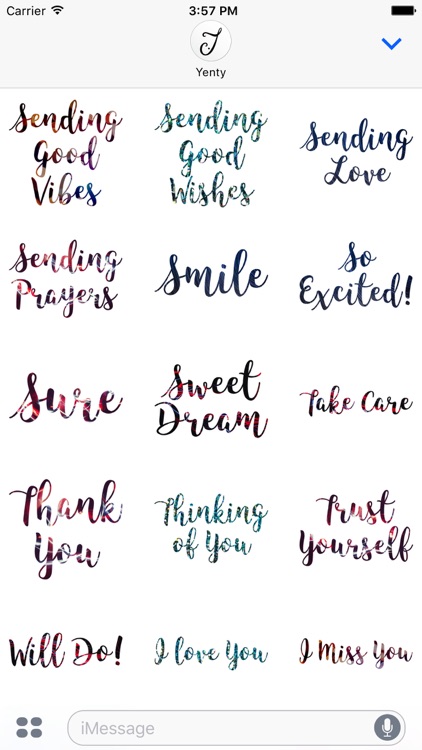 Carrier 3:57 PM
J
Yenty
Sending
Good
Vibes
Sending
Good
Wishes
Sending
Love
Sending
Prayers
Smile
So
Excited!
Sure
Sweet
Dream
Take Care
Thank
You
Thinking
of You
Trust
Yourself
Will Do!
I love You
I Miss You
iMessage